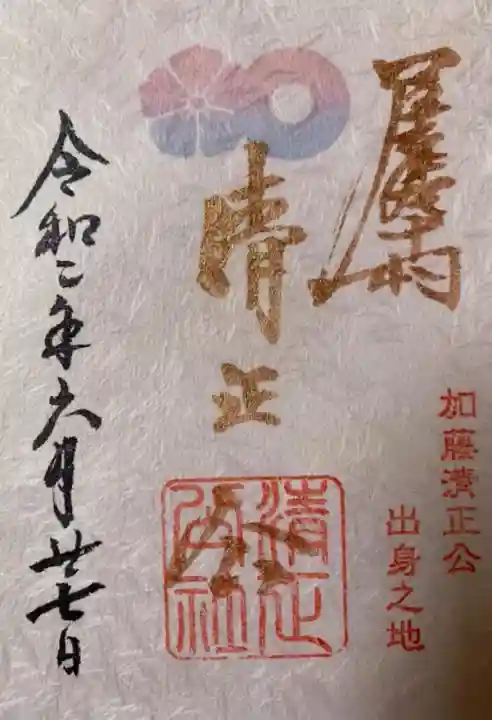 加藤清正公
出身之地
清正公
清正
公社
令和二年六月廿七日